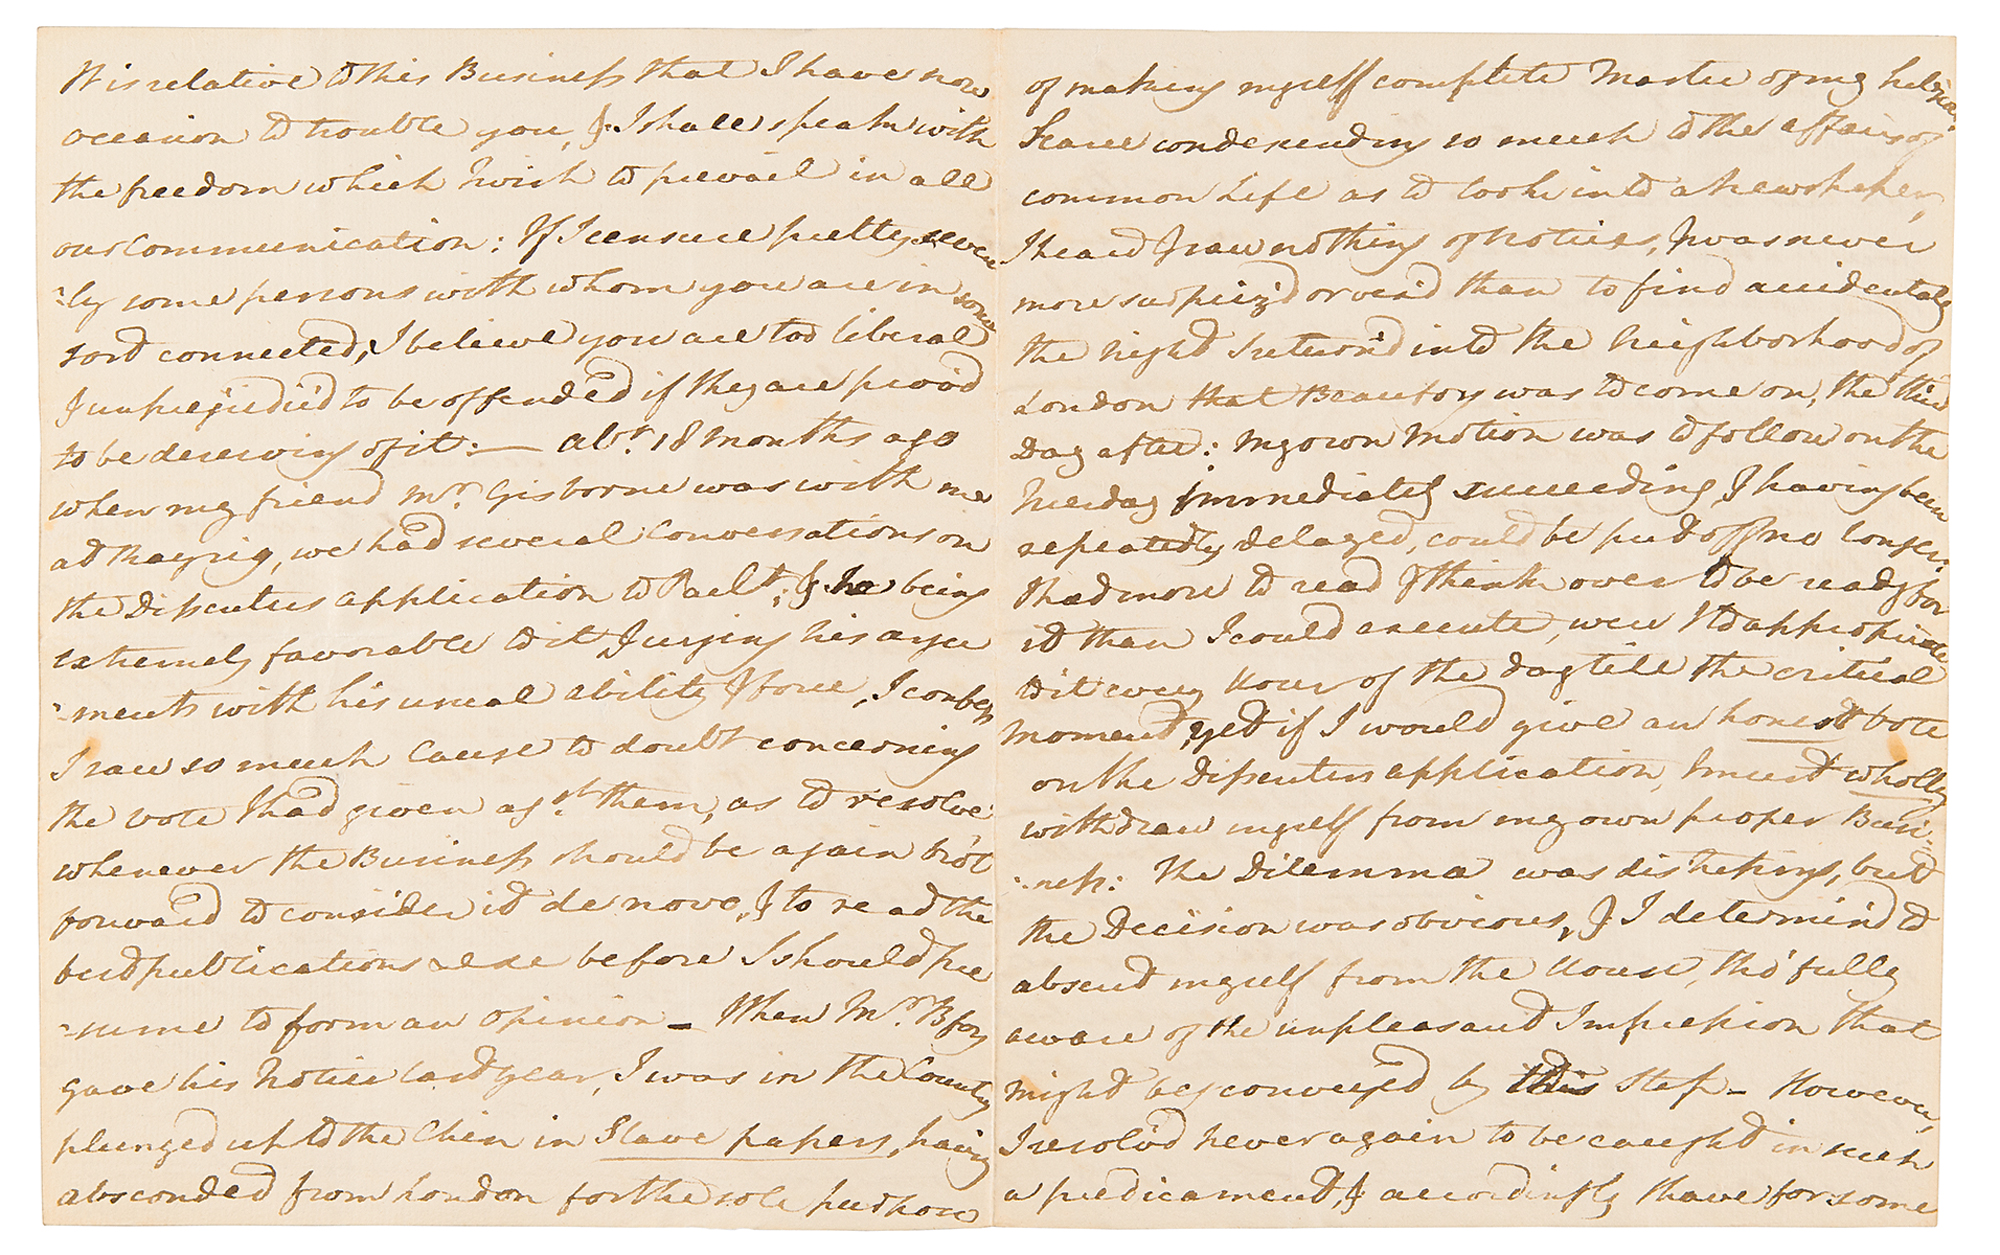 It is relative to this Business that I have now
occasion to trouble you, & I shall speak with
the freedom which I wish to prevail in all
our Communication: If I censure pretty severe
:ly some persons with whom you are in some
sort connected, I believe you are too liberal
& unprejudic'd to be offended if they are prov'd
to be deserving of it: — abt. 18 Months ago
when my friend Mr. Gisborne was with me
at Rayrig, we had several Conversations on
the Dissenters application to Parlt; & he being
extremely favorable to it & urging his argu
:ments with his usual ability & force, I confess
I saw so much Cause to doubt concerning
the vote I had given agst. them, as to resolve
whenever the Business should be again bro't
forward to consider it de novo, & to read the
best publications before I should pre
:sume to form an Opinion – When Mr. Bfoy
gave his Notice last year, I was in the Country
plunged up to the Chin in Slave papers, having
absconded from London for the sole purpose
of making myself complete Master of my
Scarce condescending so much to the affairs of
common Life as to look into a Newspaper,
I heard & saw nothing of Notices, & was never
more surpriz'd or vex'd than to find accidentally
the night I return'd into the Neighborhood of
London that Beaufoy was to come on, the third
Day after: My own Motion was to follow on the
immediately succeeding, & having been
repeatedly delayed, could be put off no longer:
I had more to read & think over to be ready for
it than I could execute, were I to appropriate
to it every Hour of the day till the critical
Moment, yet if I would give an honest vote
on the Dissenters application, I must wholly
withdraw myself from my own proper Busi
:ness: The Dilemma was distressing, but
the Decision was obvious, & I determin'd to
absent myself from the House, tho' fully
aware of the unpleasant Impression that
might be conveyed by this Step – However,
I resolv'd never again to be caught in such
a predicament, & accordingly I have for some